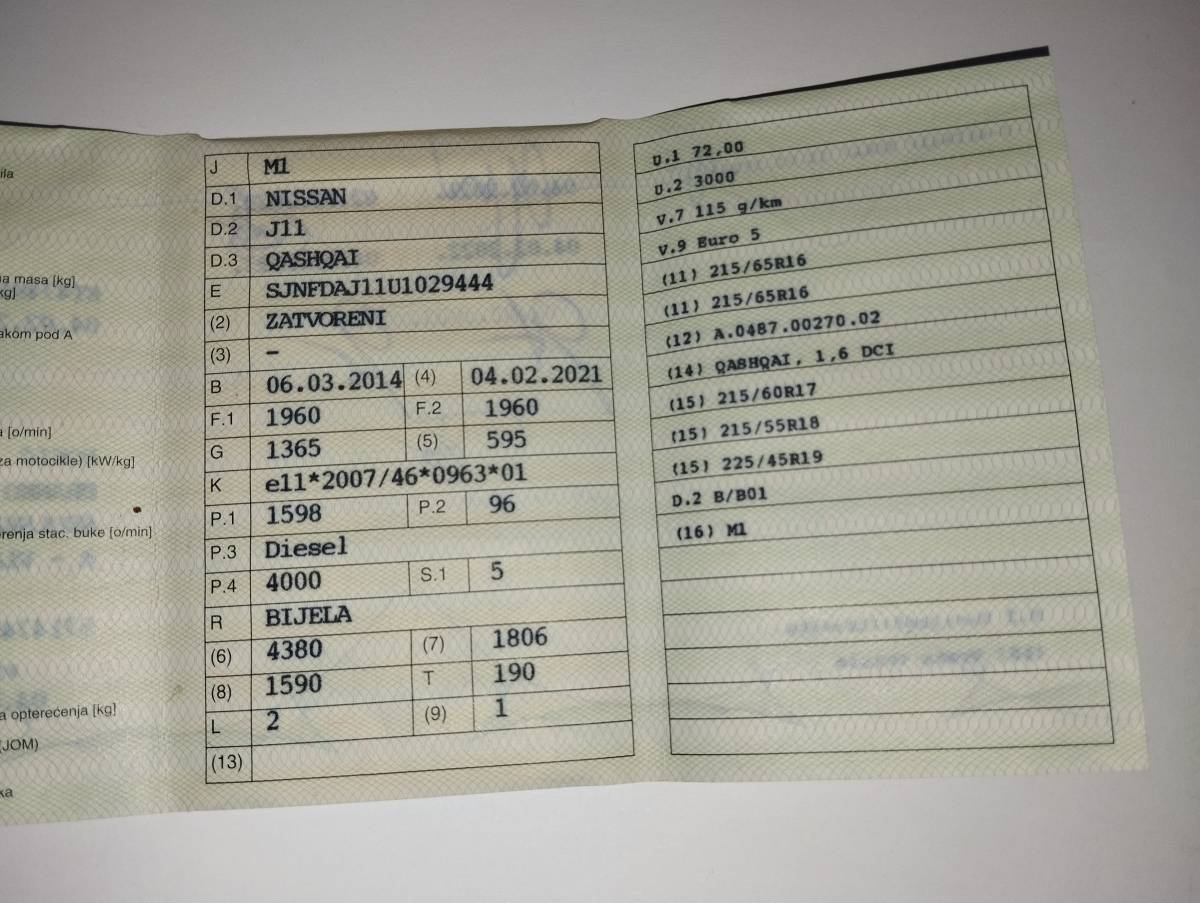 ila
ia masa [kg]
kg]
akom pod A
a [o/min]
za motocikle) [kW/kg]
renja stac. buke [o/min]
a opterećenja [kg]
(JOM)
ka
J M1
D.1 NISSAN
D.2 J11
D.3 QASHQAI
E SJNFDAJ11U1029444
(2) ZATVORENI
(3) –
B 06.03.2014 (4) 04.02.2021
F.1 1960 F.2 1960
G 1365 (5) 595
K e11*2007/46*0963*01
P.1 1598 P.2 96
P.3 Diesel
P.4 4000 S.1 5
R BIJELA
(6) 4380 (7) 1806
(8) 1590 T 190
L 2 (9) 1
(13)
U.1 72,00
U.2 3000
V.7 115 g/km
V.9 Euro 5
(11) 215/65R16
(11) 215/65R16
(12) A.0487.00270.02
(14) QASHQAI, 1,6 DCI
(15) 215/60R17
(15) 215/55R18
(15) 225/45R19
D.2 B/B01
(16) M1